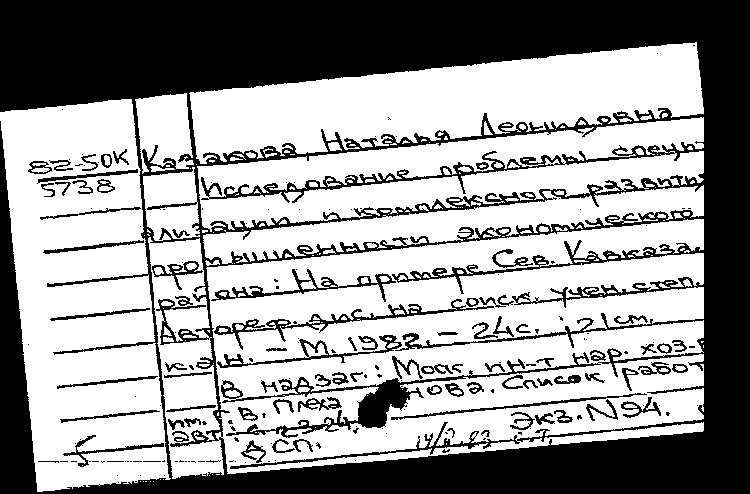 82-50К
5738
Казакова, Наталья Леонидовна
Исследование проблемы специ-
ализации и комплексного развития
промышленности экономического
района: На примере Сев. Кавказа.
Автореф. дис. на соиск. учен. степ.
к.э.н. - М., 1982. - 24с. ; 21см.
В надзаг.: Моск. ин-т нар. хоз-в
им. Г.В. Плеха нова. Список работ
авт.: с. 23-24.
Экз. N94.
ДСП.
5